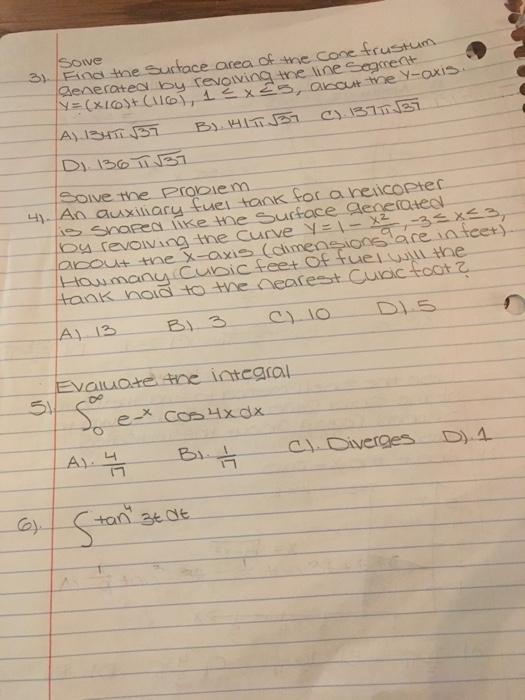 Solve
3). Find the surface area of the cone frustum
generated by revolving the line segment
y=(x/6)+(1/6), 1 ≤ x ≤ 5, about the y-axis.
A) 134π √37 B). 141π √37 C). 137π √37
D). 136 π √37
Solve the problem
4). An auxiliary fuel tank for a helicopter
is shaped like the surface generated
by revolving the curve y=1- x²/9, -3≤ x≤ 3,
about the x-axis (dimensions are in feet)
How many cubic feet of fuel will the
tank hold to the nearest cubic foot?
A). 13 B). 3 C). 10 D). 5
Evaluate the integral
5) ∫₀^∞ e-x cos4x dx
A). 4/17 B). 1/17 C). Diverges D). 1
6). ∫tan⁴ 3t dt